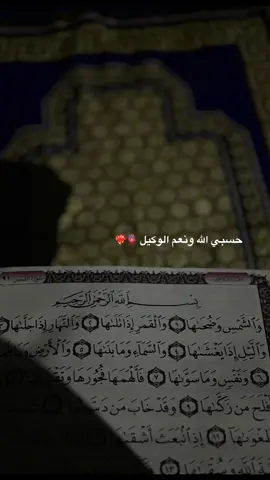 حسبي الله ونعم الوكيل
بِسْمِ اللَّهِ الرَّحْمَٰنِ الرَّحِيمِ
وَالشَّمْسِ وَضُحَىٰهَا ١ وَالْقَمَرِ إِذَا تَلَىٰهَا ٢ وَالنَّهَارِ إِذَا جَلَّىٰهَا
وَالَّيْلِ إِذَا يَغْشَىٰهَا ٤ وَالسَّمَآءِ وَمَا بَنَىٰهَا ٥ وَالْأَرْضِ
وَنَفْسٍ وَمَا سَوَّىٰهَا ٧ فَأَلْهَمَهَا فُجُورَهَا
مَن زَكَّىٰهَا ٩ وَقَدْ خَابَ مَن
إِذِ انۢبَعَثَ